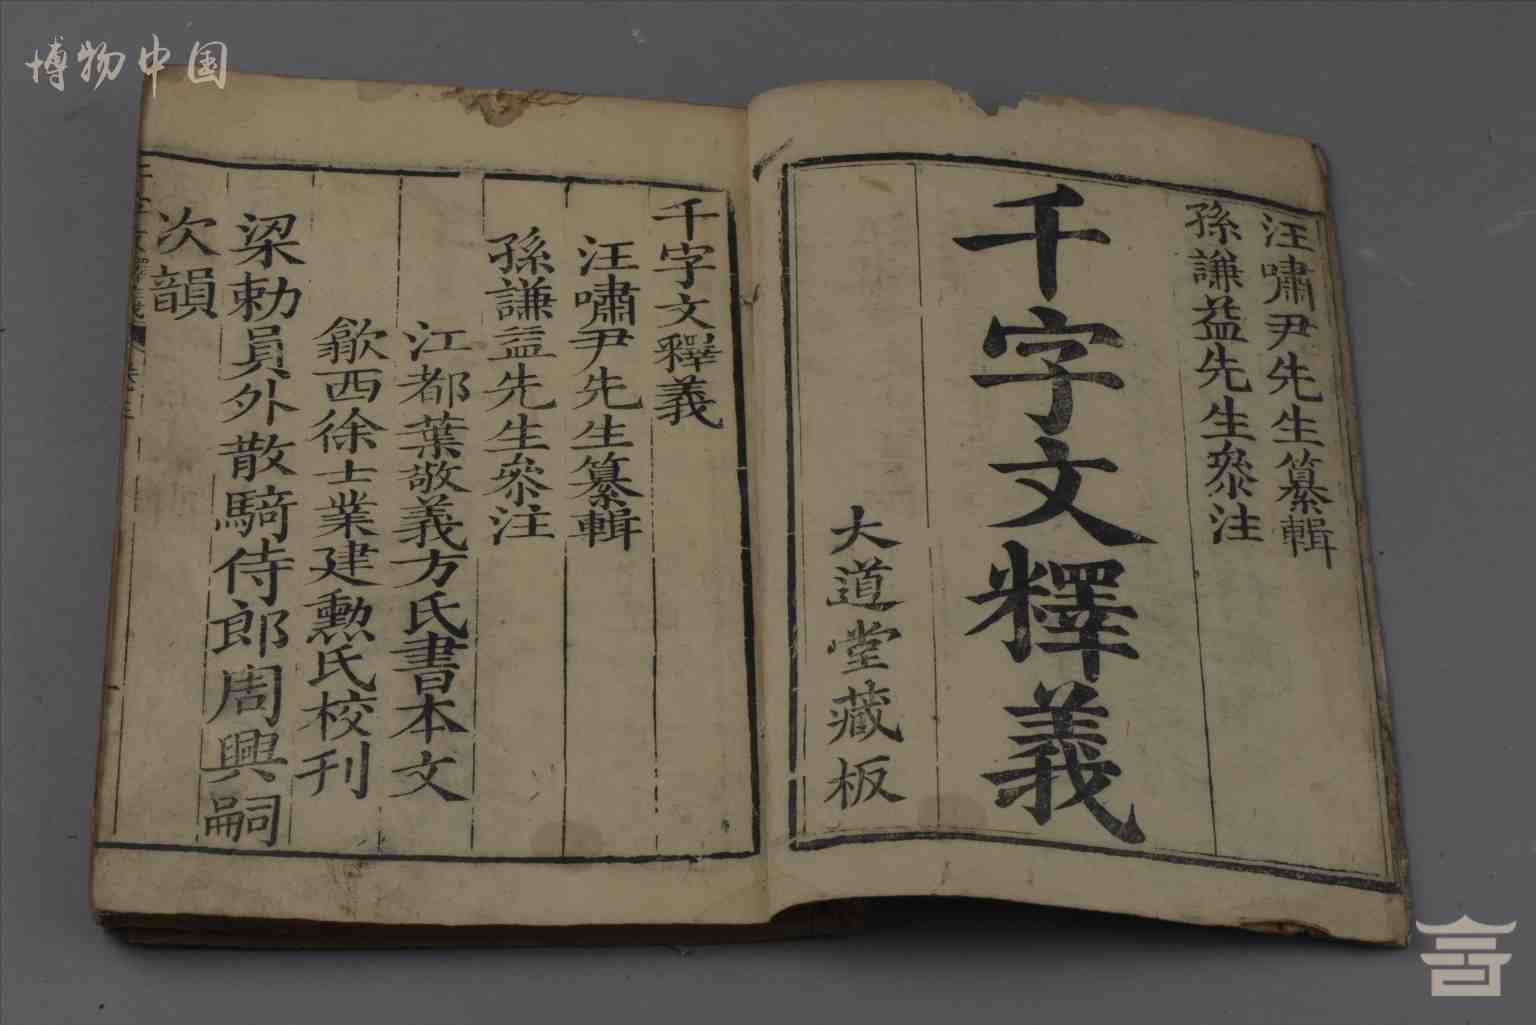 博物中国
汪嘯尹先生纂輯
孫謙益先生叅注
千字文釋義
大道堂藏板
千字文釋義
汪嘯尹先生纂輯
孫謙益先生叅注
江都葉敬義方氏書本文
歙西徐士業建勲氏校刊
梁勅員外散騎侍郎周興嗣
次韻